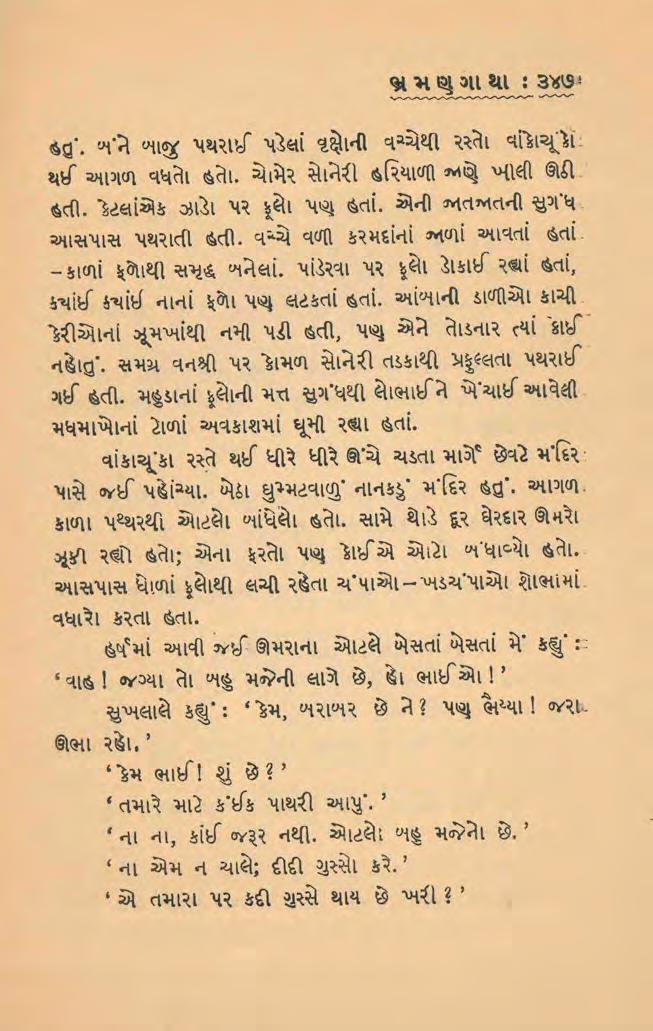 ભ્રમણગાથા : ૩૪૭
હતું. બંને બાજુ પથરાઈ પડેલાં વૃક્ષોની વચ્ચેથી રસ્તો વાંકોચૂંકો
થઈ આગળ વધતો હતો. ચોમેર સોનેરી હરિયાળી જાણે ખીલી ઊઠી
હતી. કેટલાંએક ઝાડો પર ફૂલો પણ હતાં. એની જાતજાતની સુગંધ
આસપાસ પથરાતી હતી. વચ્ચે વળી કરમદાંનાં જાળાં આવતાં હતાં
–કાળાં ફળોથી સમૃદ્ધ બનેલાં. પાંડેરવા પર ફૂલો ડોકાઈ રહ્યાં હતાં,
ક્યાંઈ ક્યાંઈ નાનાં ફળો પણ લટકતાં હતાં. આંબાની ડાળીઓ કાચી
કેરીઓનાં ઝૂમખાંથી નમી પડી હતી, પણ એને તોડનાર ત્યાં કોઈ
નહોતું. સમગ્ર વનશ્રી પર કોમળ સોનેરી તડકાથી પ્રફુલ્લતા પથરાઈ
ગઈ હતી. મહુડાનાં ફૂલોની મત્ત સુગંધથી લોભાઈને ખેંચાઈ આવેલી
મધમાખોનાં ટોળાં અવકાશમાં ઘૂમી રહ્યા હતાં.
વાંકાચૂંકા રસ્તે થઈ ધીરે ધીરે ઊંચે ચડતા માર્ગે છેવટે મંદિર
પાસે જઈ પહોંચ્યા. બેઠા ઘુમ્મટવાળું નાનકડું મંદિર હતું. આગળ
કાળા પથ્થરથી ઓટલો બાંધેલો હતો. સામે થોડે દૂર ઘેરદાર ઊમરો
ઝૂકી રહ્યો હતો; એના ફરતો પણ કોઈએ ઓટો બંધાવ્યો હતો.
આસપાસ ધોળાં ફૂલોથી લચી રહેતા ચંપાઓ–ખડચંપાઓ શોભામાં
વધારો કરતા હતા.
હર્ષમાં આવી જઈ ઊમરાના ઓટલે બેસતાં બેસતાં મેં કહ્યું :
‘વાહ! જગ્યા તો બહુ મજેની લાગે છે, હો ભાઈઓ!’
સુખલાલે કહ્યું : ‘કેમ, બરાબર છે ને? પણ ભૈય્યા! જરા
ઊભા રહો.’
‘કેમ ભાઈ! શું છે?’
‘તમારે માટે કંઈક પાથરી આપું.’
‘ના ના, કાંઈ જરૂર નથી. ઓટલો બહુ મજેનો છે.’
‘ના એમ ન ચાલે; દીદી ગુસ્સો કરે.’
‘એ તમારા પર કદી ગુસ્સે થાય છે ખરી?’